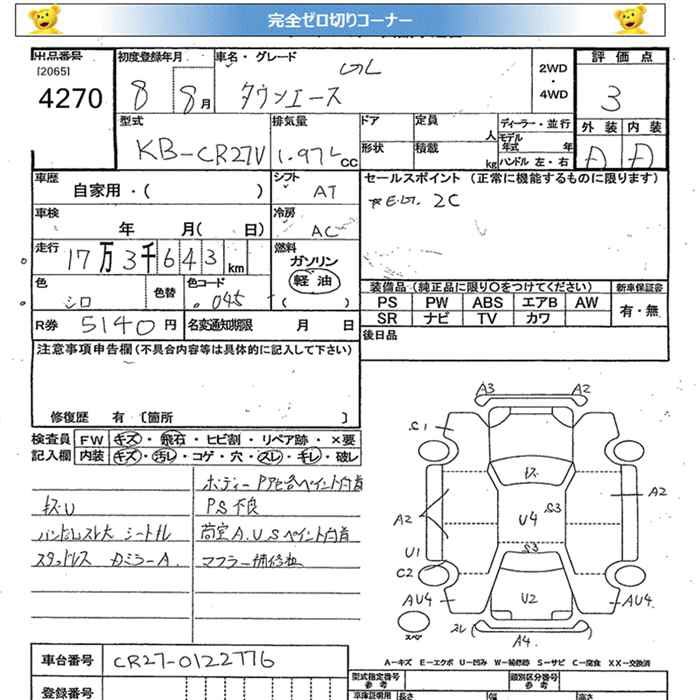 完全ゼロ切りコーナー
出品番号
[2065]
4270
初度登録年月
8 8月
車名・グレード
GL
タウンエース
2WD
・
4WD
評価点
3
外装 内装
D D
型式
KB-CR27V
排気量
1.97L CC
ドア
定員
人
ディーラー・並行
モデル
年式 年
形状
積載
kg
ハンドル 左・右
車歴
自家用・( )
シフト
AT
セールスポイント (正常に機能するものに限ります)
2C
車検
年 月( 日)
冷房
AC
走行
17万3千643km
燃料
ガソリン
軽油
( )
色
シロ
色替
色コード
045
装備品(純正品に限り○をつけてください)
新車保証書
PS PW ABS エアB AW
有・無
SR ナビ TV カワ
R券 5140円
名変通知期限 月 日
後日品
注意事項申告欄(不具合内容等は具体的に記入して下さい)
修復歴 有 〔箇所 〕
検査員 FW キズ・飛石・ヒビ割・リペア跡・×要
記入欄 内装 キズ・汚レ・コゲ・穴・スレ・キレ・破レ
キズU
PS不良
スタッドレス
A3 A2
C1
キズ
A2
S3
A2
U4
U1
S3
C2
AU4
U2
AU4
スペア
スレ
A4
A-キズ E-エクボ U-凹み W-補修跡 S-サビ C-腐食 XX-交換済
車台番号 CR27-0122776
登録番号
型式指定番号
参考
類別区分番号
参考
車庫証明用
長さ
幅
高さ